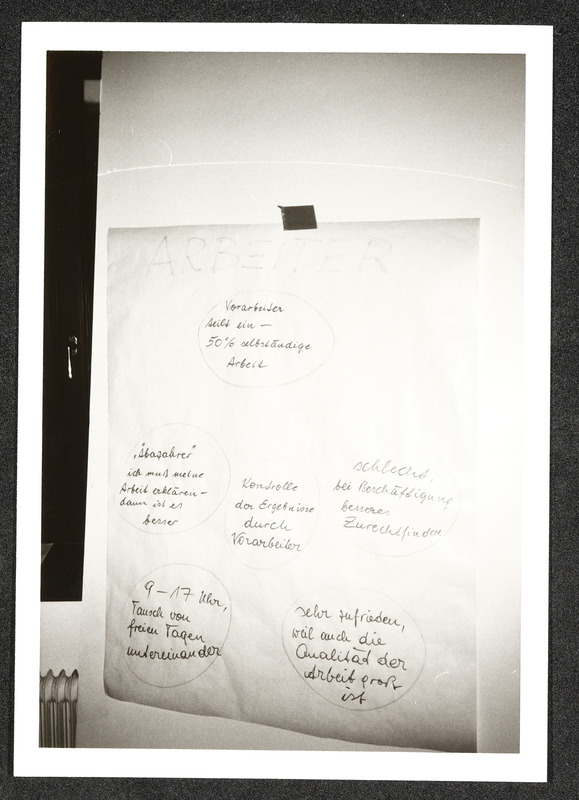 ARBEITER
Vorarbeiter
teilt ein –
50% selbständige
Arbeit
ich muß meine
Arbeit erklären –
dann ist es
besser
Kontrolle
der Ergebnisse
durch
Vorarbeiter
schlecht,
bei Beschäftigung
besseres
Zurechtfinden
9 – 17 Uhr,
Tausch von
freien Tagen
untereinander
sehr zufrieden,
weil auch die
Qualität der
Arbeit groß
ist